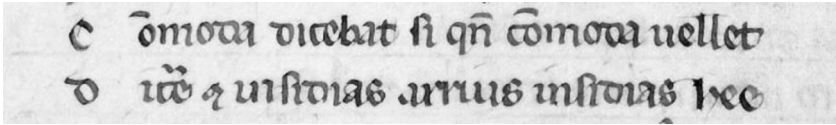 C om̄oda dicebat si qn̄ com̄oda uellet
D ic̄e & insidias arrius insidias hee